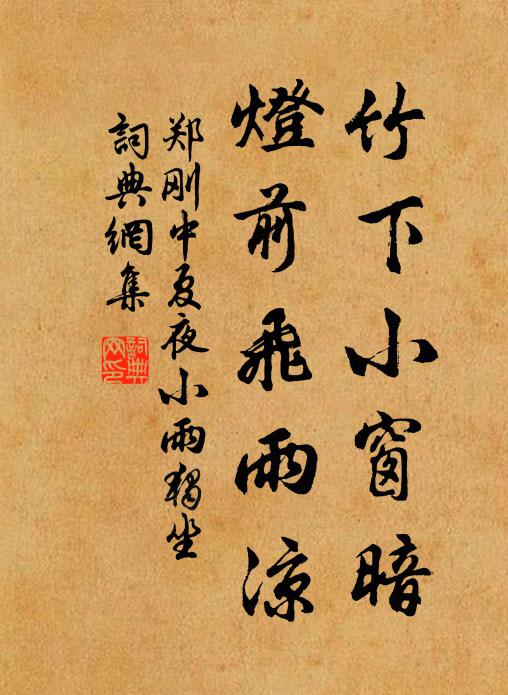 竹下小窗暗
燈前飛雨涼
郑刚中夏夜小雨独坐
詞典網集
詞典
网印